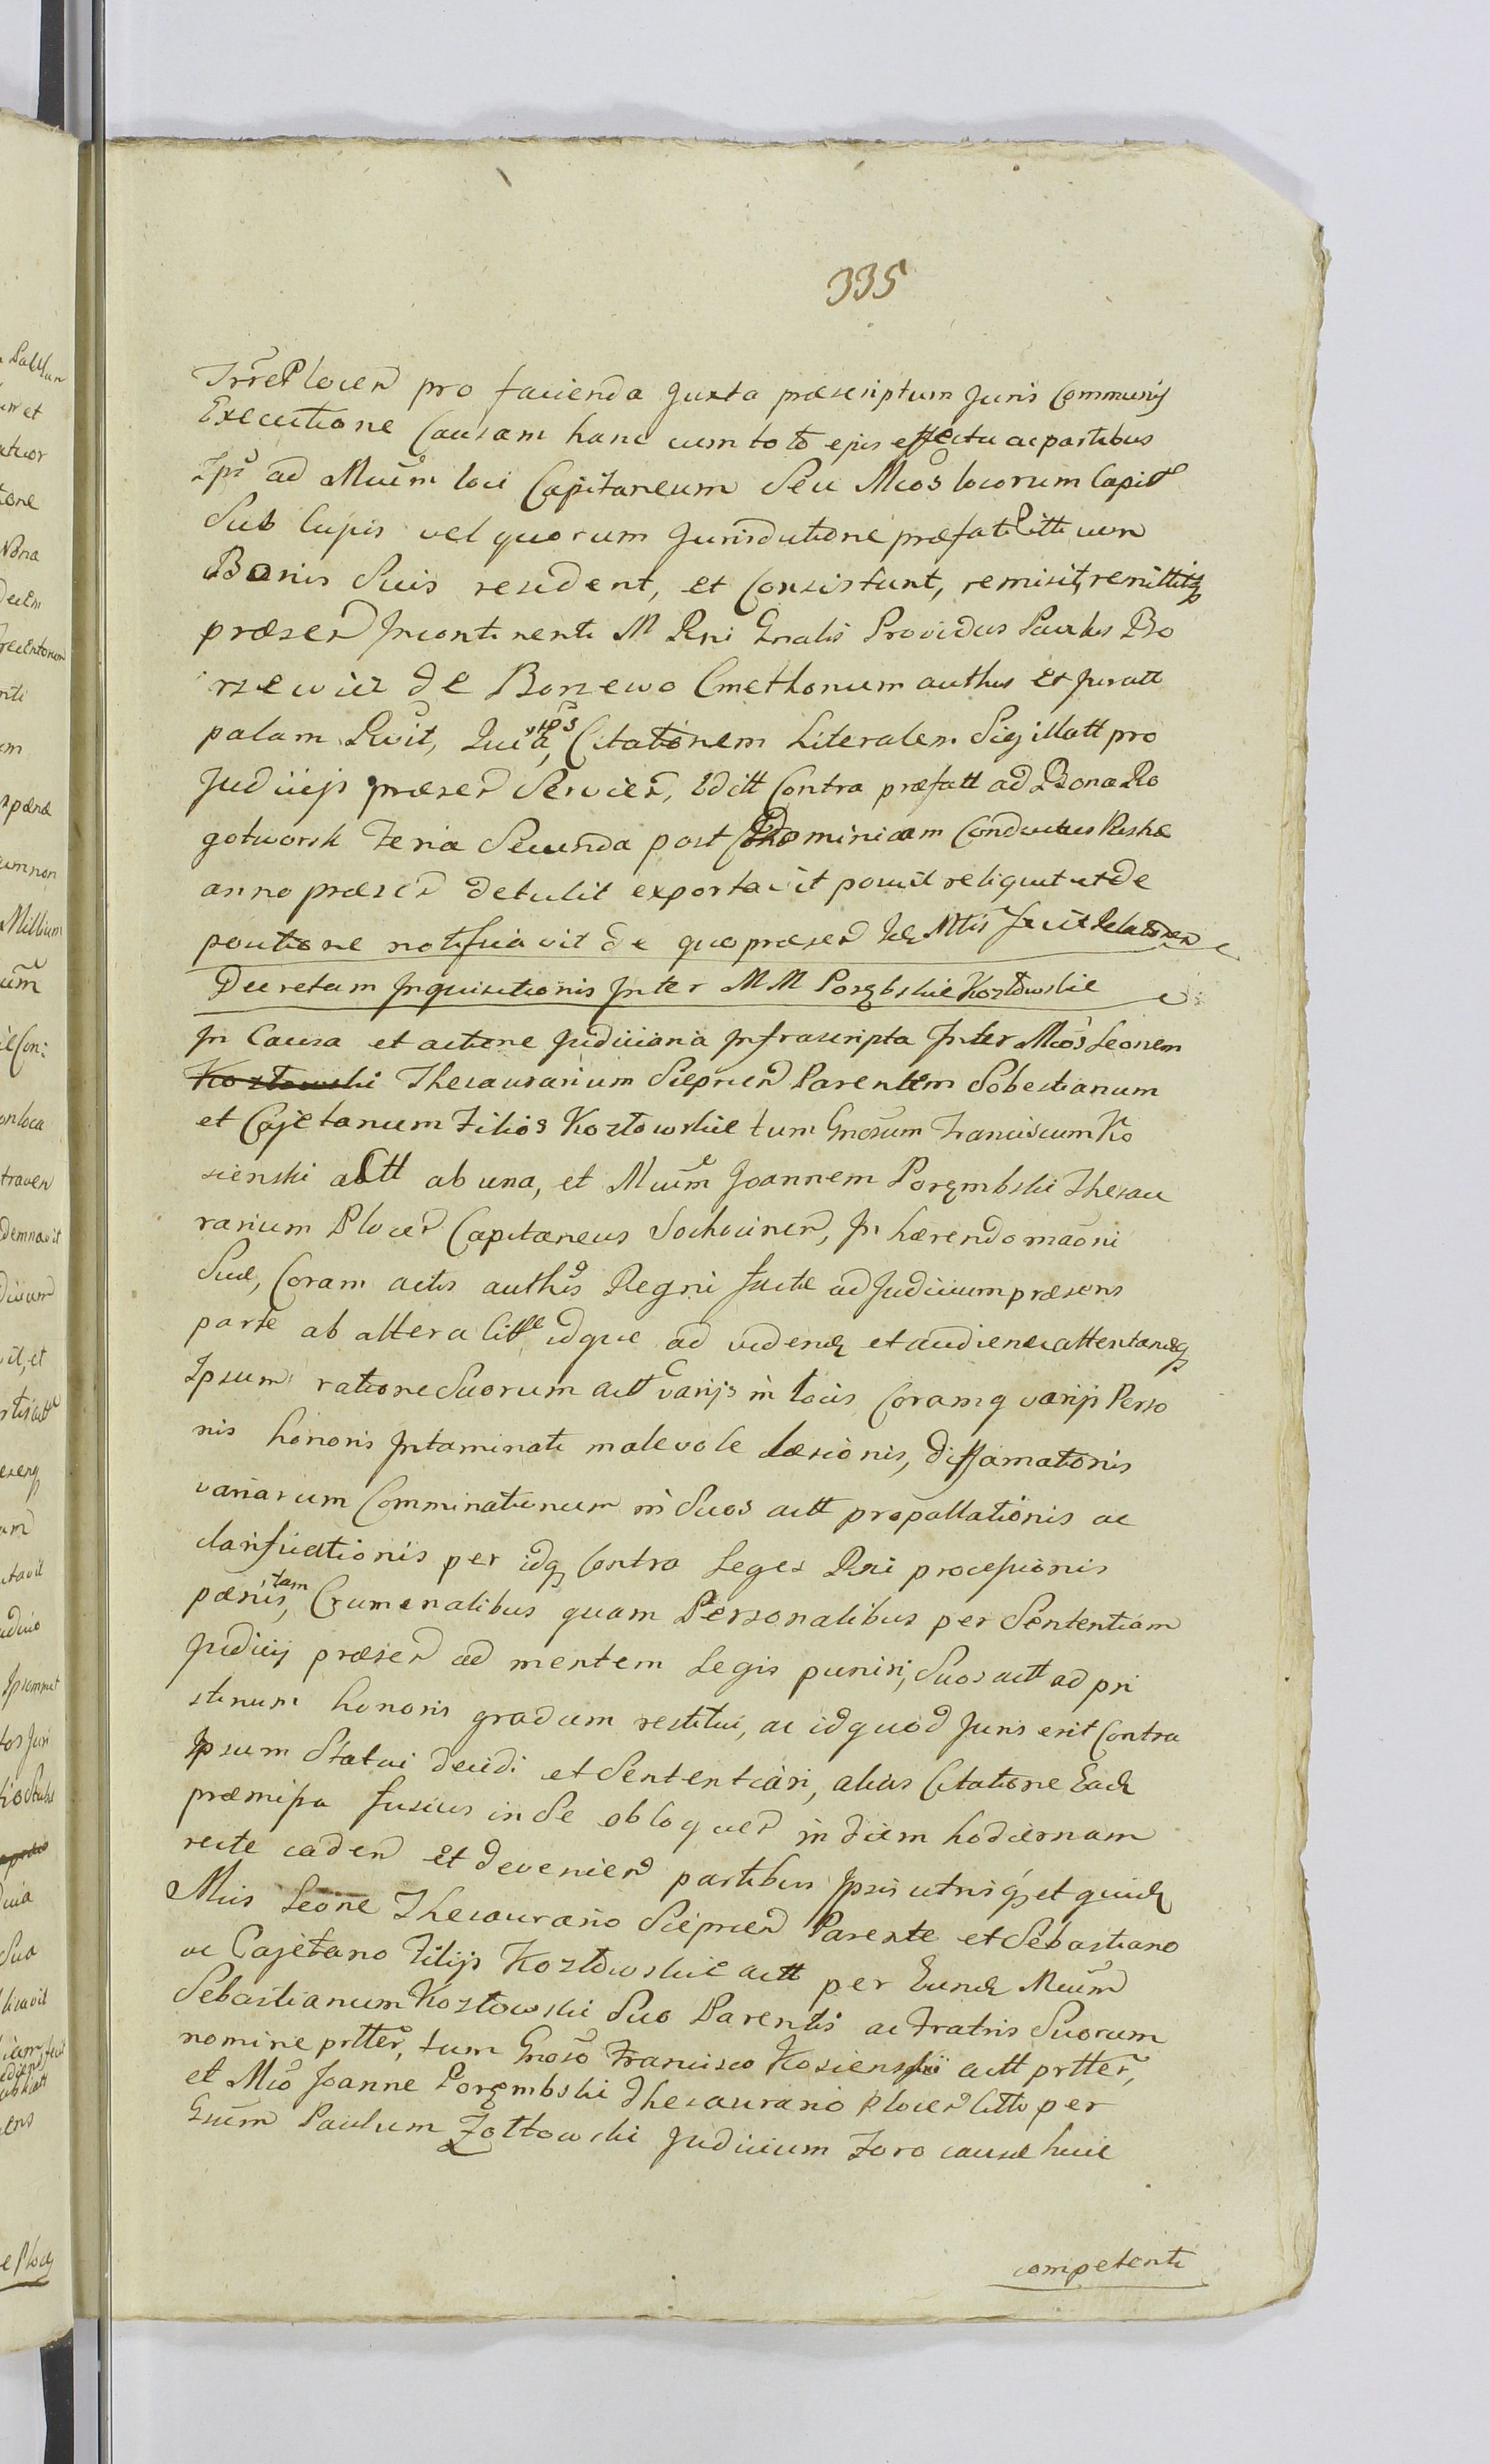 335
Trrē Plocen pro facienda Juxta præscriptum Juris Communis
Executione Causam hanc cum toto ejus effectu ac partibus
Ips ad Mcum loci Capitaneum Seu Mcos locorum Capit
Sub cujus vel quorum Jurisdictione præfati Citti cum
Bonis Suis resident, et Consistunt, remisit, remittitq
præsen Incontinenti M Rni Gnalis Providus Paulus Bo
rzewicz de Borzewo Cmethonum authus et Juratt
palam Rcvit, Quia ips, Citationem Literalem Sigillatt pro
Judicijs præsen Servien, Editt Contra præfatt ad Bona Ro
gotworsk Feria Secunda post Dominicam Conductus Paschæ
anno præsen detulit exportavit posuit reliquit et de
positione notificavit de quo præsen Idq Mtis fecit Relationem
Decretum Inquisitionis Inter MM Porębskie Kozłowskie
In Causa et actione Judiciaria Infrascripta Inter Mcos Leonem
Kozłowski Thesaurarium Sieprcen Parentem Sobestianum
et Cajetanum Filios Kozłowskie tum Gnosum Franciscum Ko
sienski actt ab una, et Mcum Joannem Poręmbski Thesau
rarium Plocen Capitaneus Sochocinen, In hærendo maoni
Suæ, Coram actis authis Regni factæ ad Judicium præsens
parte ab altera citt idque ad videnq et audienq attentandq
Ipsum ratione Suorum actt varijs in locis Coramq varijs Perso
nis honoris Intaminati malevole læsionis, diffamationis
variarum Comminationum in Suos actt propallationis ac
clarificationis per idq Contra Leges Rni processionis
pænis, tam Crumenalibus quam Personalibus per Sententiam
Judicij præsen ad mentem Legis puniri, Suos actt ad pri
stinum honoris gradum restitui, ac id quod Juris erit Contra
Ipsum Statui decidi et Sententiari, alias Citatione Eadq
præmissa fusius in Se obloquen in diem hodiernam
recte caden et devenien partibus Ipsis utrisq, et quidq
Mcis Leone Thesaurario Sieprcen Parente et Sebastiano
ac Cajetano Filijs Kozłowskie actt per Eundq Mcum
Sebastianum Kozłowski Suo Parentis ac Fratris Suorum
nomine prtter, tum Gnoso Francisco Kosienski actt prtter,
et Mco Joanne Poręmbski Thesaurario Plocen Citto per
Gsum Paulum Żółtowski Judicium Foro causæ huic
competenti